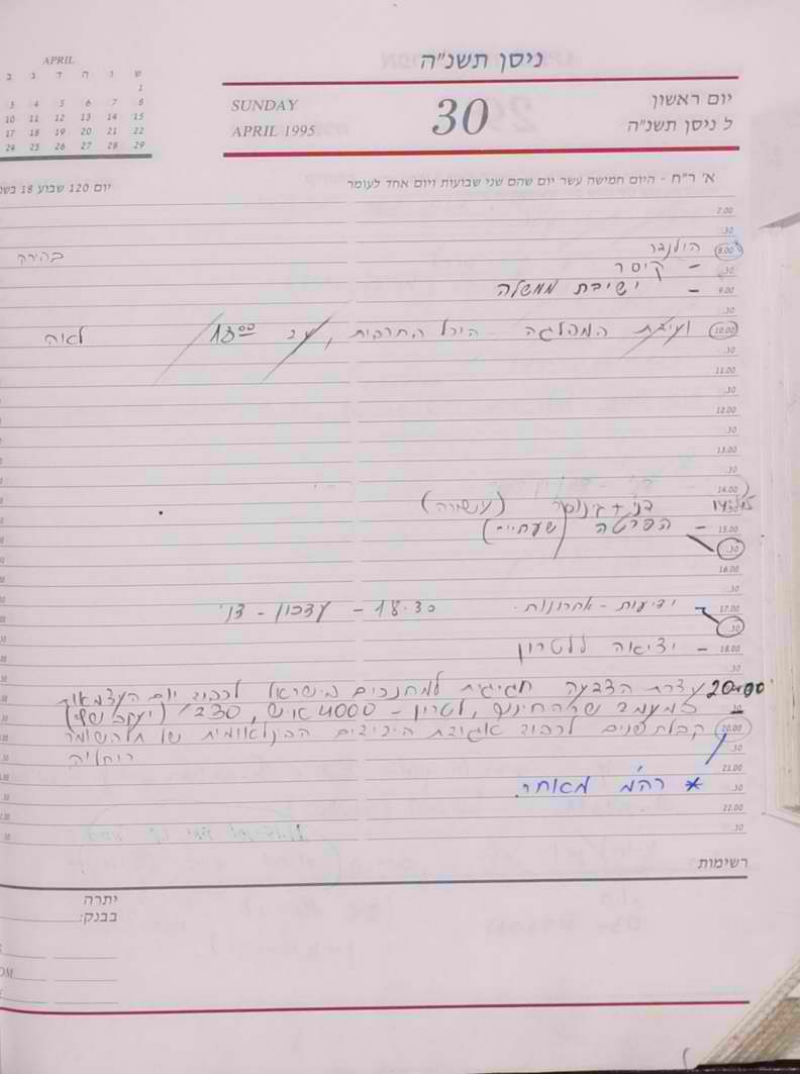 ניסן תשנ"ה
APRIL
ב ג ד ה ו ש
1
3 4 5 6 7 8
10 11 12 13 14 15
17 18 19 20 21 22
24 25 26 27 28 29
SUNDAY 30 יום ראשון
APRIL 1995 ל ניסן תשנ"ה
א' ר"ח - היום חמישה עשר יום שהם שני שבועות ויום אחד לעומר
יום 120 שבוע 18
7.00
.30
8.00 הולנדר
.30 - קיסר
9.00 - ישיבת ממשלה
.30
10.00 ועידת המפלגה היכל התרבות, עד 13:00 לאוה
.30
11.00
.30
12.00
.30
13.00
.30
14.00
14:45 דני +
15.00 - הפרטה
.30
16.00
.30
17.00 ידיעות - אחרונות. 18.30 - עדכון - דני
.30
18.00 - יציאה ללטרון
.30
20:00 עצרת הצבעה חגיגית למחנכים בישראל לכבוד יום העצמאות
במעמד שר החינוך, לטרון - 4000 איש, 230
20.00 קבלת פנים לכבוד אגודת הידידים הבינלאומית של תל השומר
.30
21.00
.30 * רה"מ מאחר.
22.00
.30
רשימות
יתרה
בבנק: